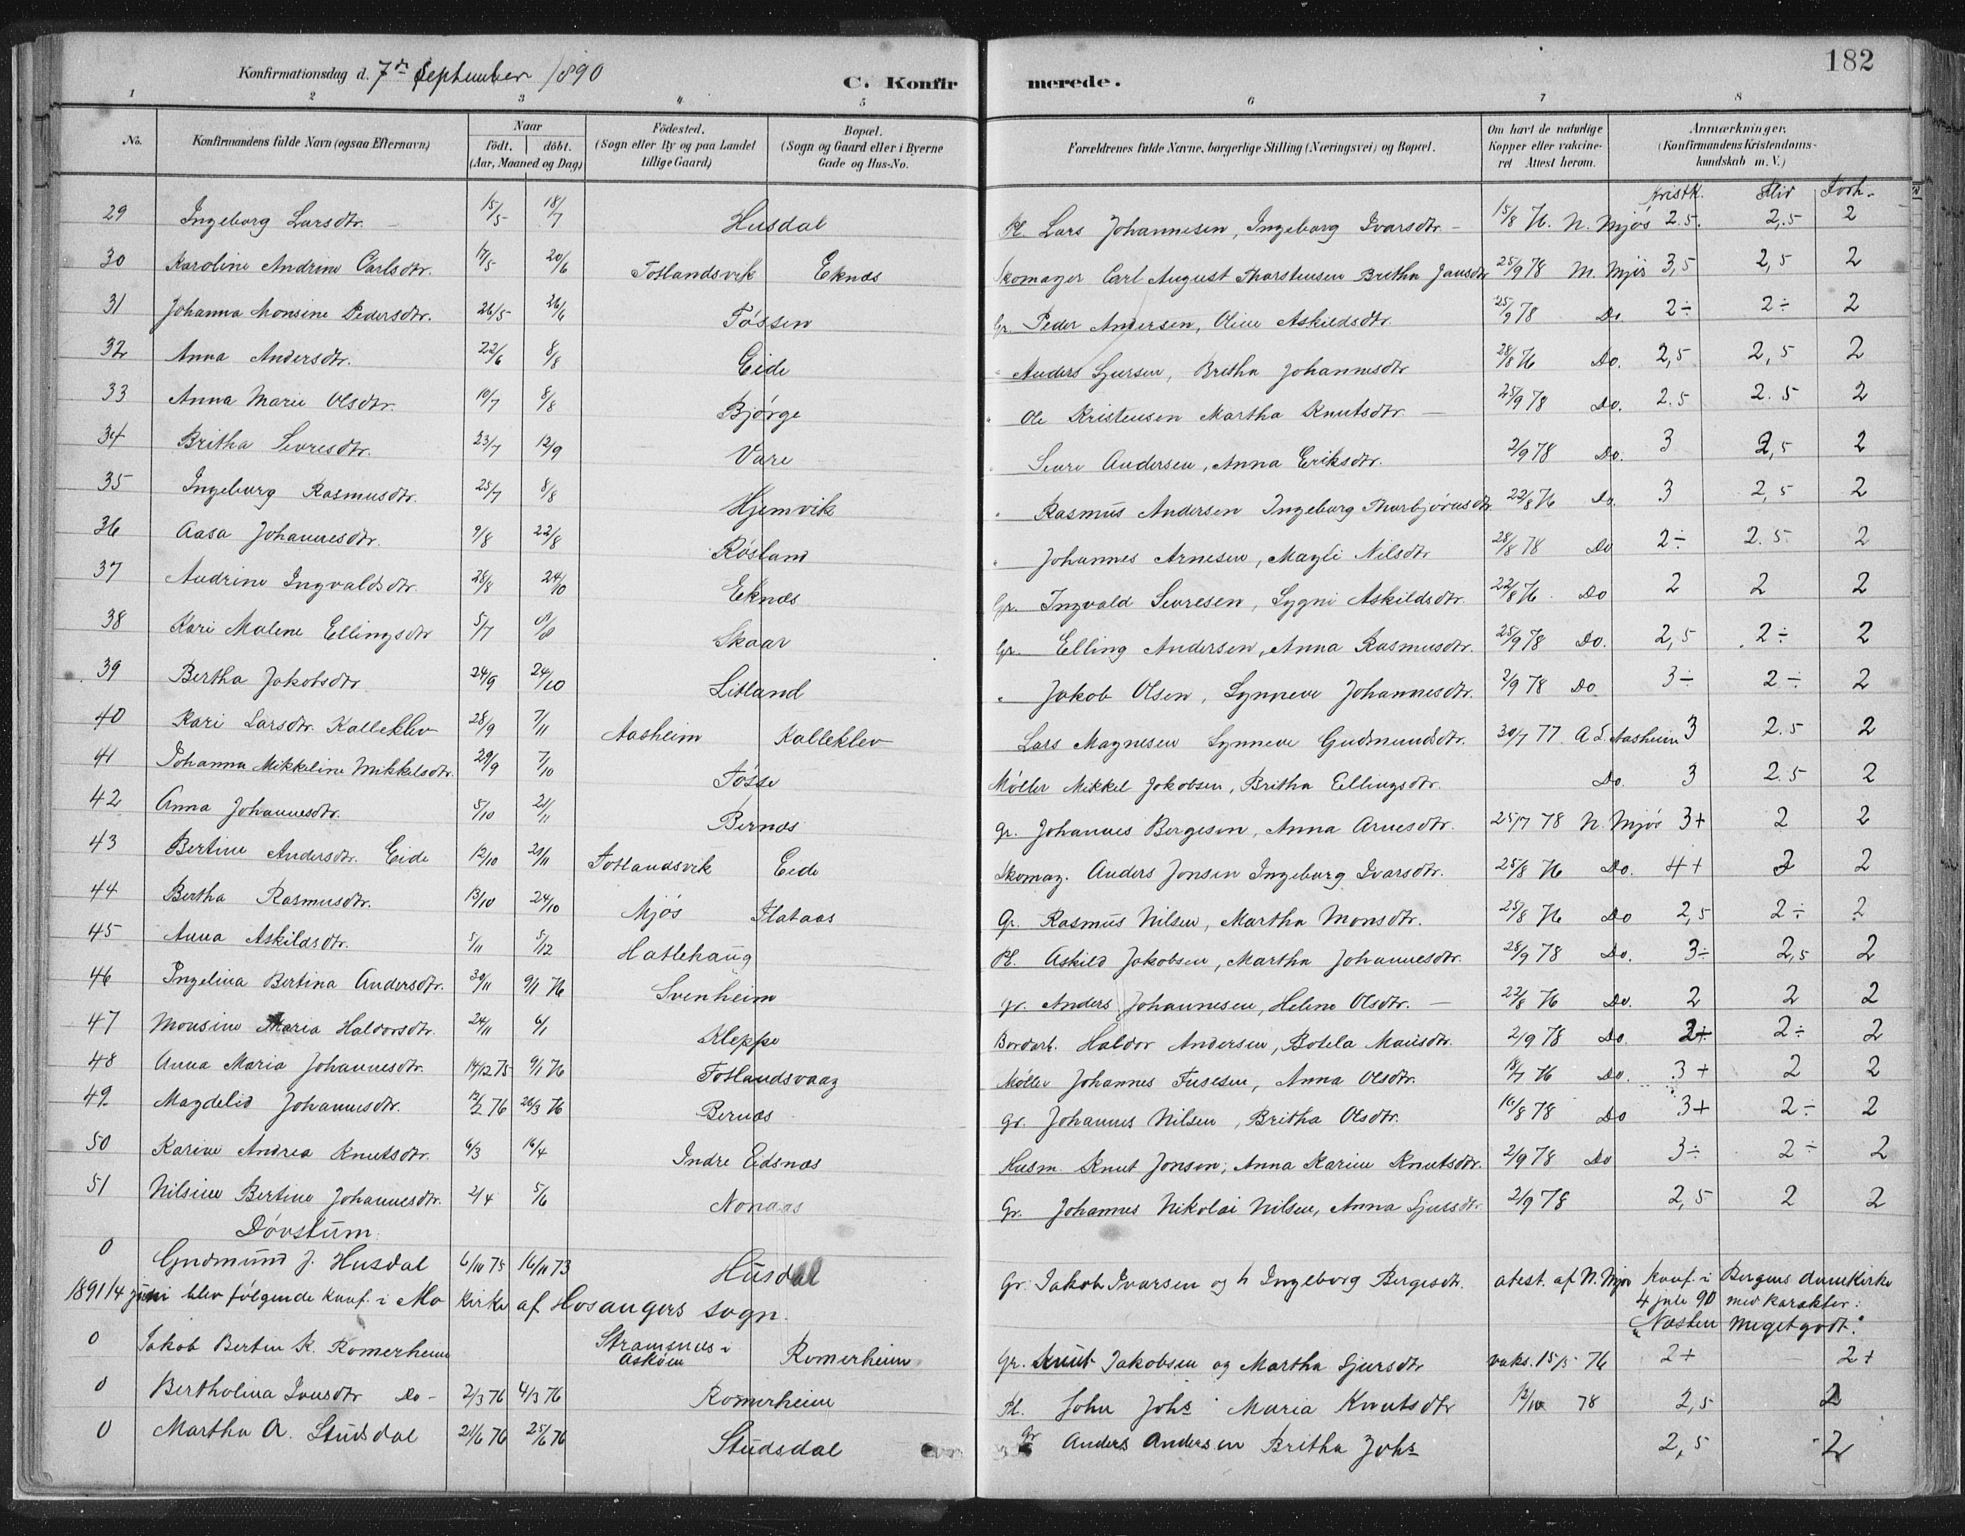 182
Konfirmationsdag d. 7de September 1890
C. Konfirmerede.
1 2 3 4 5 6 7 8
No. Konfirmandens fulde Navn (ogsaa Efternavn) Naar födt. döbt. (Aar, Maaned og Dag) Födested. (Sogn eller By og paa Landet tillige Gaard) Bopæl. (Sogn og Gaard eller i Byerne Gade og Hus-No. Forældrenes fulde Navne, borgerlige Stilling (Næringsvei) og Bopæl. Om havt de naturlige Kopper eller vaccineret Attest herom. Anmærkninger. (Konfirmandens Kristendomskundskab m. V.)
Kristk. Flid Forh.
29 Ingeborg Larsdtr. 15/5 18/7 Husdal Pl. Lars Johannesen, Ingeborg Ivarsdtr. 15/8 76. N. Mjøs 2.5. 2.5 2
30 Karoline Andrine Carlsdtr. 17/5 20/6 Fotlandsvik Eknæs Skomager Carl August Thorstensen Britha Jansdtr 25/9 78 N. Mjøs 3,5 2,5 2
31 Johanna Monsine Pedersdtr. 26/5 26/6 Fossen Gr. Peder Andersen, Oline Askildsdtr. 25/9 78 Do. 2÷ 2÷ 2
32 Anna Andersdtr. 22/6 8/8 Eide " Anders Sjursen, Britha Johannesdtr 28/8 76 Do. 2,5 2,5 2
33 Anna Marie Olsdtr. 10/7 8/8 Bjørge " Ole Kristensen Martha Knutsdtr. 25/9 78 Do. 2.5 2.5 2
34 Britha Sevresdtr. 23/7 12/9 Vare " Sevre Andersen, Anna Eriksdtr. 2/9 78 Do. 3 2,5 2
35 Ingeborg Rasmusdtr. 25/7 8/8 Hjemvik " Rasmus Andersen Ingeborg Thorbjørnsdtr 22/8 76 Do. 3 2,5 2
36 Aasa Johannesdtr. 9/8 22/8 Røsland " Johannes Arnesen, Magli Nilsdtr 28/8 78 Do 2÷ 2.5 2
37 Andrine Ingvaldsdtr. 28/8 24/10 Eknæs Gr. Ingvald Sevresen, Sygni Askildsdtr. 22/8 76. Do 2 2 2
38 Kari Malene Ellingsdtr 5/7 8/8 Skaar Gr. Elling Andersen, Anna Rasmusdtr. 25/9 78 Do. 2,5 2÷ 2
39 Bertha Jakobsdtr 24/9 24/10 Litland " Jakob Olsen, Synneve Johannesdtr. 2/9 78 Do. 3÷ 2÷ 2
40 Kari Larsdtr. Kalleklev 28/9 7/11 Aasheim Kalleklev Lars Magnesen Synneve Gudmundsdtr. 30/7 77. A S. Aasheim 3 2.5 2
41 Johanna Mikkeline Mikkelsdtr. 29/9 7/10 Fosse Møller Mikkel Jakobsen, Britha Ellingsdtr. Do. 3 2.5 2
42 Anna Johannesdtr. 5/10 21/11 Bernæs Gr. Johannes Bergeson, Anna Arnesdtr. 25/7 78 N. Mjøs 3+ 2 2
43 Bertine Andersdtr. Eide 12/10 21/11 Fotlandsvik Eide Skomag. Anders Jonsen Ingeborg Ivarsdtr. 25/8 76 Do. 4+ 2 2
44 Bertha Rasmusdtr. 13/10 24/10 Mjøs Flataas Gr. Rasmus Nilsen, Martha Monsdtr. 25/8 76 Do 2,5 2÷ 2
45 Anna Askildsdtr. 5/11 5/12 Hatlehaug Pl. Askild Jakobsen, Martha Johannesdtr. 28/9 78 Do. 3÷ 2,5 2
46 Ingelina Bertina Andersdtr. 30/11 9/1 76 Svenheim Gr. Anders Johannesen, Helene Olsdtr. 22/8 76 Do. 2 2 2
47 Monsine Maria Haldorsdtr. 24/11 6/1 Kleppe Bordarb. Haldor Andersen, Botela Mausdtr. 2/9 78 Do. 2÷ 2÷ 2
48 Anna Maria Johannesdtr. 14/12 75 9/1 76 Fotlandsvaag Møller Johannes Fusesen, Anna Olsdtr. 18/7 76 Do. 3+ 2 2
49. Magdelid Johannesdtr. 12/2 76 26/3 76 Bernæs Gr. Johannes Nilsen, Britha Olsdtr. 16/8 78 Do 3+ 2÷ 2
50 Karine Andrea Knutsdtr. 6/3 16/4 Indre Eidsnæs Husm. Knut Jonsen, Anna Karine Knutsdtr. 2/9 78 Do 3÷ 2÷ 2
51 Nilsine Bertine Johannesdtr. 2/4 5/6 Nonaas Gr. Johannes Nikolai Nilsen, Anna Sjursdtr. 2/9 78 2,5 2 2
Døvstum.
0 Gudmund J. Husdal 6/10 75 16/11 73 Husdal Gr. Jakob Ivarsen og h Ingeborg Bergesdtr. atest. af N. Mjøs Konf. i Bergens domkirke
4 juli 90 med karakter:
"Næsten meget godt."
1891 14 juni blev følgende konf. i Mo Kirke af Hosangers sogn.
0 Jakob Bertin K. Romerheim Stramsnes i Askøen Romerheim Gr. Knut Jakobsen og Martha Sjursdtr vaks. 15/5 76 2+ 2+
0 Bertholina Jonsdtr Do- 2/3 76 4/3 76 Romerheim Pl. John Johs Maria Knutsdtr 12/10 78 2,5 2
0 Martha A. Studsdal 21/6 76 25/6 76 Studsdal Gr Anders Andersen Britha Johs 2,5 2